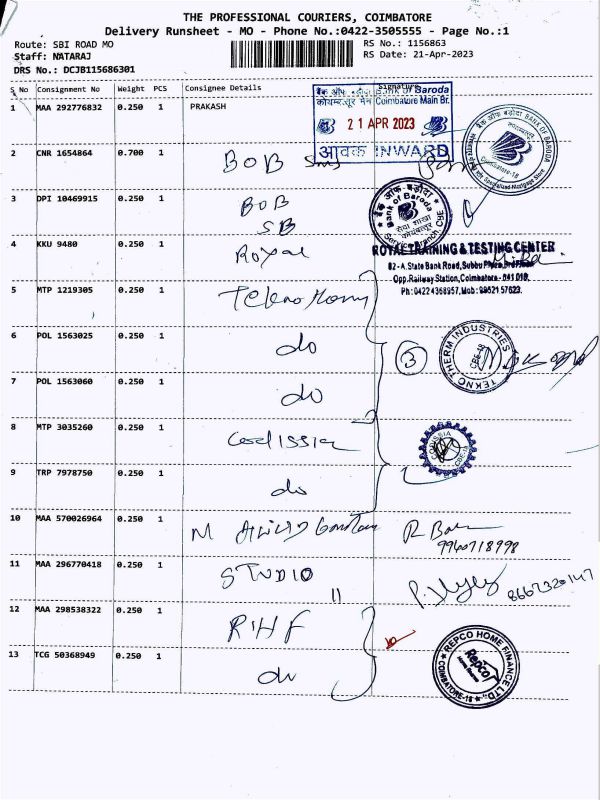 THE PROFESSIONAL COURIERS, COIMBATORE
Delivery Runsheet - MO - Phone No.:0422-3505555 - Page No.:1
Route: SBI ROAD MO
RS No.: 1156863
Staff: NATARAJ
RS Date: 21-Apr-2023
DRS No.: DCJB115686301
S No Consignment No Weight PCS Consignee Details Signature
1 MAA 292776832 0.250 1 PRAKASH
बैंक ऑफ़ बड़ौदा Bank of Baroda
कोयम्बत्तूर मैन Coimbatore Main Br.
21 APR 2023
आवक INWARD
BANK OF BARODA
COIMBATORE-18
2 CNR 1654864 0.700 1 BOB
3 DPI 10469915 0.250 1 BOB
SB
बैंक ऑफ़ बड़ौदा
Bank of Baroda
सेवा शाखा
कोयम्बत्तूर
Service Branch, CBE
4 KKU 9480 0.250 1 Royal
ROYAL TRAINING & TESTING CENTER
82-A, State Bank Road,
Opp. Railway Station, Coimbatore - 641 018.
Ph: 04224358957, Mob: 99621 57623.
5 MTP 1219305 0.250 1 Tekno Therm
6 POL 1563025 0.250 1 do
3
TEKNO THERM INDUSTRIES
CBE-18
7 POL 1563060 0.250 1 do
8 MTP 3035260 0.250 1 Codissia
CODISSIA
CBE-18
9 TRP 7978750 0.250 1 do
10 MAA 570026964 0.250 1 M
9940718998
11 MAA 296770418 0.250 1 STUDIO 11
8667320147
12 MAA 298538322 0.250 1 RHF
13 TCG 50368949 0.250 1 do
REPCO HOME FINANCE LTD.
Repco
COIMBATORE-18